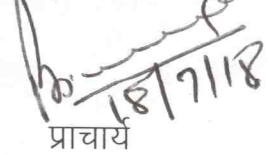 18/7/18
प्राचार्य